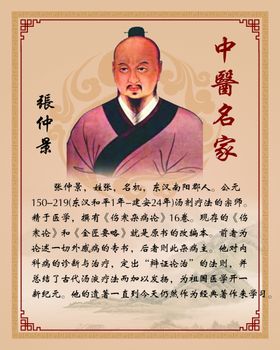 中醫名家
張仲景
张仲景，姓张，名机，东汉南阳郡人。公元
150-219(东汉和平1年-建安24年)汤剂疗法的宗师。
精于医学，撰有《伤寒杂病论》16卷。现存的《伤
寒论》和《金匮要略》就是原书的改编本。前者为
论述一切外感病的专书，后者则此杂病主。他对内
科病的诊断与治疗，定出“辩证论治”的法则，并
总结了古代汤液疗法而加以发扬，为祖国医学开一
新纪元。他的遗著一直到今天仍然作为经典著作来学习。